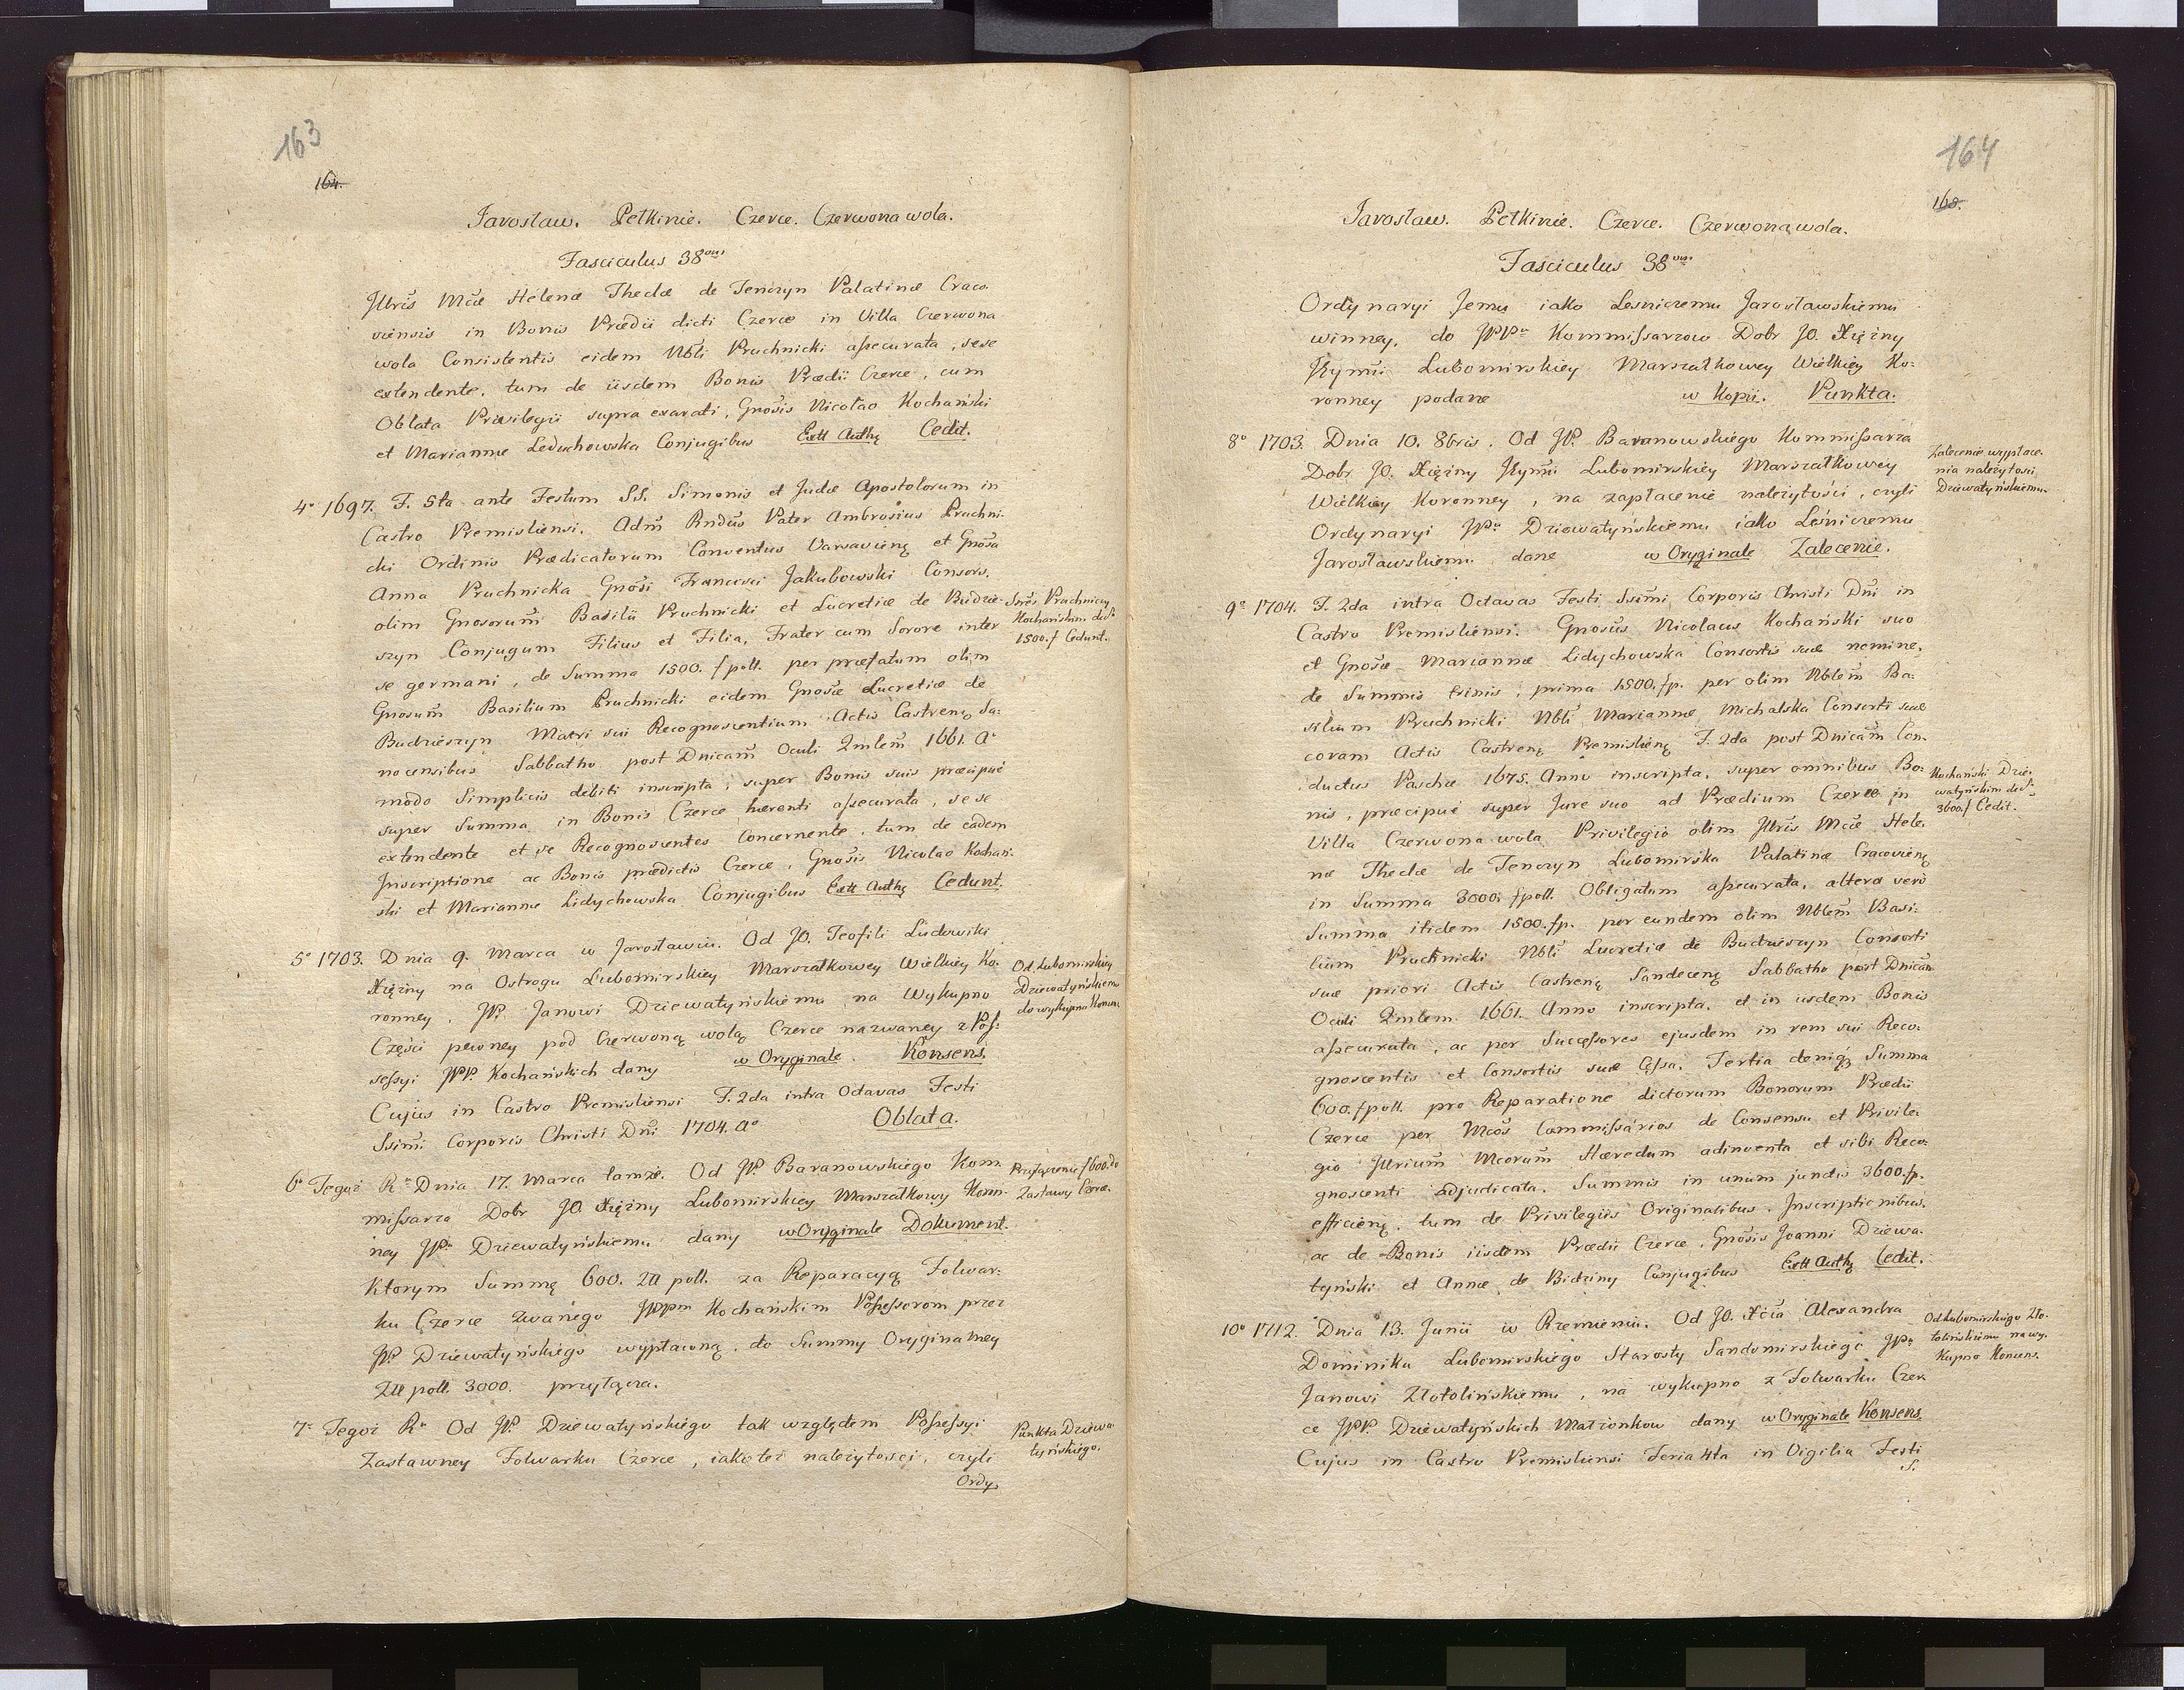 163
164.
Jarosław. Pełkinie. Czerce. Czerwona wola.
Fasciculus 38vus
Jllris Mcæ Helenæ Theclæ de Tenczyn Palatinæ Craco-
viensis in Bonis Prædii dicti Czerce in Villa Czerwona
wola Consistentis eidem Nbli Pruchnicki assecurata, sese
extendente, tum de iisdem Bonis Prædii Czerce, cum
Oblata Privilegii supra exarati, Gnosis Nicolao Kochański
et Mariannæ Leduchowska Conjugibus Extt Authę Cedit.
4o 1697. F. 5ta ante Festum SS. Simonis et Judæ Apostolorum in
Castro Premisliensi. Adm Rndus Pater Ambrosius Pruchni-
cki Ordinis Prædicatorum Conventus Varsavienę et Gnosa
Anna Pruchnicka Gnosi Francisci Jakubowski Consors,
olim Gnosorum Basilii Pruchnicki et Lucretiæ de Budzie-
szyn Conjugum Filius et Filia, Frater cum Sorore inter
se germani, de Summa 1500. f poll. per præfatum olim
Gnosum Basilium Pruchnicki eidem Gnosæ Lucretiæ de
Budzieszyn Matri sui Recognoscentium Actis Castrenę Sa-
nocensibus Sabbatho post Dnicam Oculi Qmlem 1661. Ao
modo Simplicis debiti inscripta, super Bonis suis præcipue
super Summa in Bonis Czerce hærenti assecurata, sese
extendente et se Recognoscentes Concernente, tum de eadem
Jnscriptione ac Bonis prædictis Czerce, Gnosis Nicolao Kochań-
ski et Mariannæ Lidychowska Conjugibus Extt Authę Cedunt.
Kochańskim
1500. f Cedunt.
5o 1703. Dnia 9. Marca w Jarosławiu. Od JO. Teofili Ludowiki
Xiężny na Ostrogu Lubomirskiey Marszałkowey Wielkiey Ko-
ronney, JP. Janowi Dziewałyńskiemu na Wykupno
Części pewney pod Czerwoną wolą Czerce nazwaney z Pos-
sessyi JPP. Kochańskich dany w Oryginale Konsens.
Cujus in Castro Premisliensi F. 2da intra Octavas Festi
Ssimi Corporis Christi Dni 1704. Ao Oblata.
Od Lubomirskiey
Dziewałyńskiemu
do wykupna Konsens
6o Tegoż Ru Dnia 17. Marca tamże. Od JP. Baranowskiego Kom-
missarza Dobr JO. Xiężny Lubomirskiey Marszałkowy Koron-
ney JPu Dziewałyńskiemu dany w Oryginale Dokument.
Ktorym Summę 600. Zll poll. za Reparacyą Folwar-
ku Czerce zwanego JPPm Kochańskim Possessorom przez
JP. Dziewałyńskiego wypłaconą, do Summy Oryginalney
Zll poll. 3000. przyłącza.
Przyłączenie f 600. do
Zastawy Czerce.
7o Tegoż Ru Od JP. Dziewałyńskiego tak względem Possessyi
Zastawney Folwarku Czerce, iako też należytości, czyli
Ordy-
Punkta Dziewa-
łyńskiego.
164
165.
Jarosław. Pełkinie. Czerce. Czerwona wola.
Fasciculus 38vus
Ordynaryi Jemu iako Leśniczemu Jarosławskiemu
winney, do JPPw Kommissarzow Dobr JO. Xiężny
Jeymci Lubomirskiey Marszałkowey Wielkiey Ko-
ronney podane w Kopii. Punkta.
8o 1703. Dnia 10. 8bris. Od JP. Baranowskiego Kommissarza
Dobr JO. Xiężny Jeymci Lubomirskiey Marszałkowey
Wielkiey Koronney, na zapłacenie należytości, czyli
Ordynaryi JPu Dziewałyńskiemu iako Leśniczemu
Jarosławskiemu dane w Oryginale Zalecenie.
Zalecenie wypłace-
nia należytości
Dziewałyńskiemu.
9o 1704. F. 2da intra Octavas Festi Ssimi Corporis Christi Dni in
Castro Premisliensi. Gnosus Nicolaus Kochański suo
et Gnosæ Mariannæ Lidychowska Consortis suæ nomine,
de Summis trinis, prima 1500. fp. per olim Nblem Ba-
silium Pruchnicki Nbli Mariannæ Michalska Consorti suæ
coram Actis Castrenę Premislienę F. 2da post Dnicam Con-
ductus Paschæ 1675. Anno inscripta, super omnibus Bo-
nis, præcipue super Jure suo ad Prædium Czerce in
Villa Czerwona wola Privilegio olim Jllris Mcæ Hele-
næ Theclæ de Tenczyn Lubomirska Palatinæ Cracovienę
in Summa 3000. f poll. Obligatum assecurata, altera vero
Summa itidem 1500. fp. per eundem olim Nblem Basi-
lium Pruchnicki Nbli Lucretiæ de Budzieszyn Consorti
suæ priori Actis Castrenę Sandecenę Sabbatho post Dnicam
Oculi Qmlem 1661. Anno inscripta, et in iisdem Bonis
assecurata, ac per Successores ejusdem in rem sui Reco-
gnoscentis et Consortis suæ Cessa. Tertia denique Summa
600. f poll. pro Reparatione dictorum Bonorum Prædii
Czerce per Mcos Commissarios de Consensu et Privile-
gio Jllrium Mcorum Hæredum adinventa et sibi Reco-
gnoscenti adjudicata. Summis in unum junctis 3600. fp.
efficienę, tum de Privilegiis Originalibus, Inscriptionibus,
ac de Bonis iisdem Prædii Czerce, Gnosis Joanni Dziewa-
łyński et Annæ de Bidziny Conjugibus Extt Authę Cedit.
Kochański Dzie-
wałyńskim
3600. f Cedit.
10o 1712. Dnia 13. Junii w Rzemieniu. Od JO. Xcia Alexandra
Dominika Lubomirskiego Starosty Sandomirskiego JPu
Janowi Złotolińskiemu, na wykupno z Folwarku Czer-
ce JPP. Dziewałyńskich Małżonkow dany w Oryginale Konsens.
Cujus in Castro Premisliensi Feria 4ta in Vigilia Festi
S.
Od Lubomirskiego Zło-
tolińskiemu na wy-
kupno Konsens.